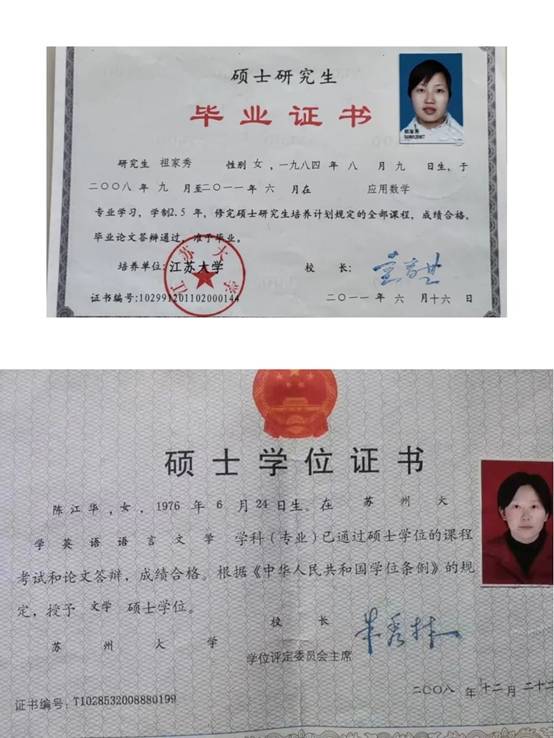 硕士研究生
毕业证书
研究生 祖家秀 性别 女 ，一九八四年 八 月 九 日生，于
二〇〇八年 九 月至二〇一一年 六 月在 应用数学
专业学习，学制2.5 年，修完硕士研究生培养计划规定的全部课程，成绩合格，
毕业论文答辩通过，准予毕业。
培养单位：江苏大学 校 长：
江苏大学
证书编号：102991201102000144 二〇一一年 六 月十六 日
硕士学位证书
陈江华 ，女，1976 年 6 月 24 日生。在 苏 州 大
学英语语言文学 学科（专业）已通过硕士学位的课程
考试和论文答辩，成绩合格。根据《中华人民共和国学位条例》的规
定，授予 文学 硕士学位。
苏 州 大 学 校 长
学位评定委员会主席
证书编号：T1028532008880199 二〇〇八 年 十二 月 二十二